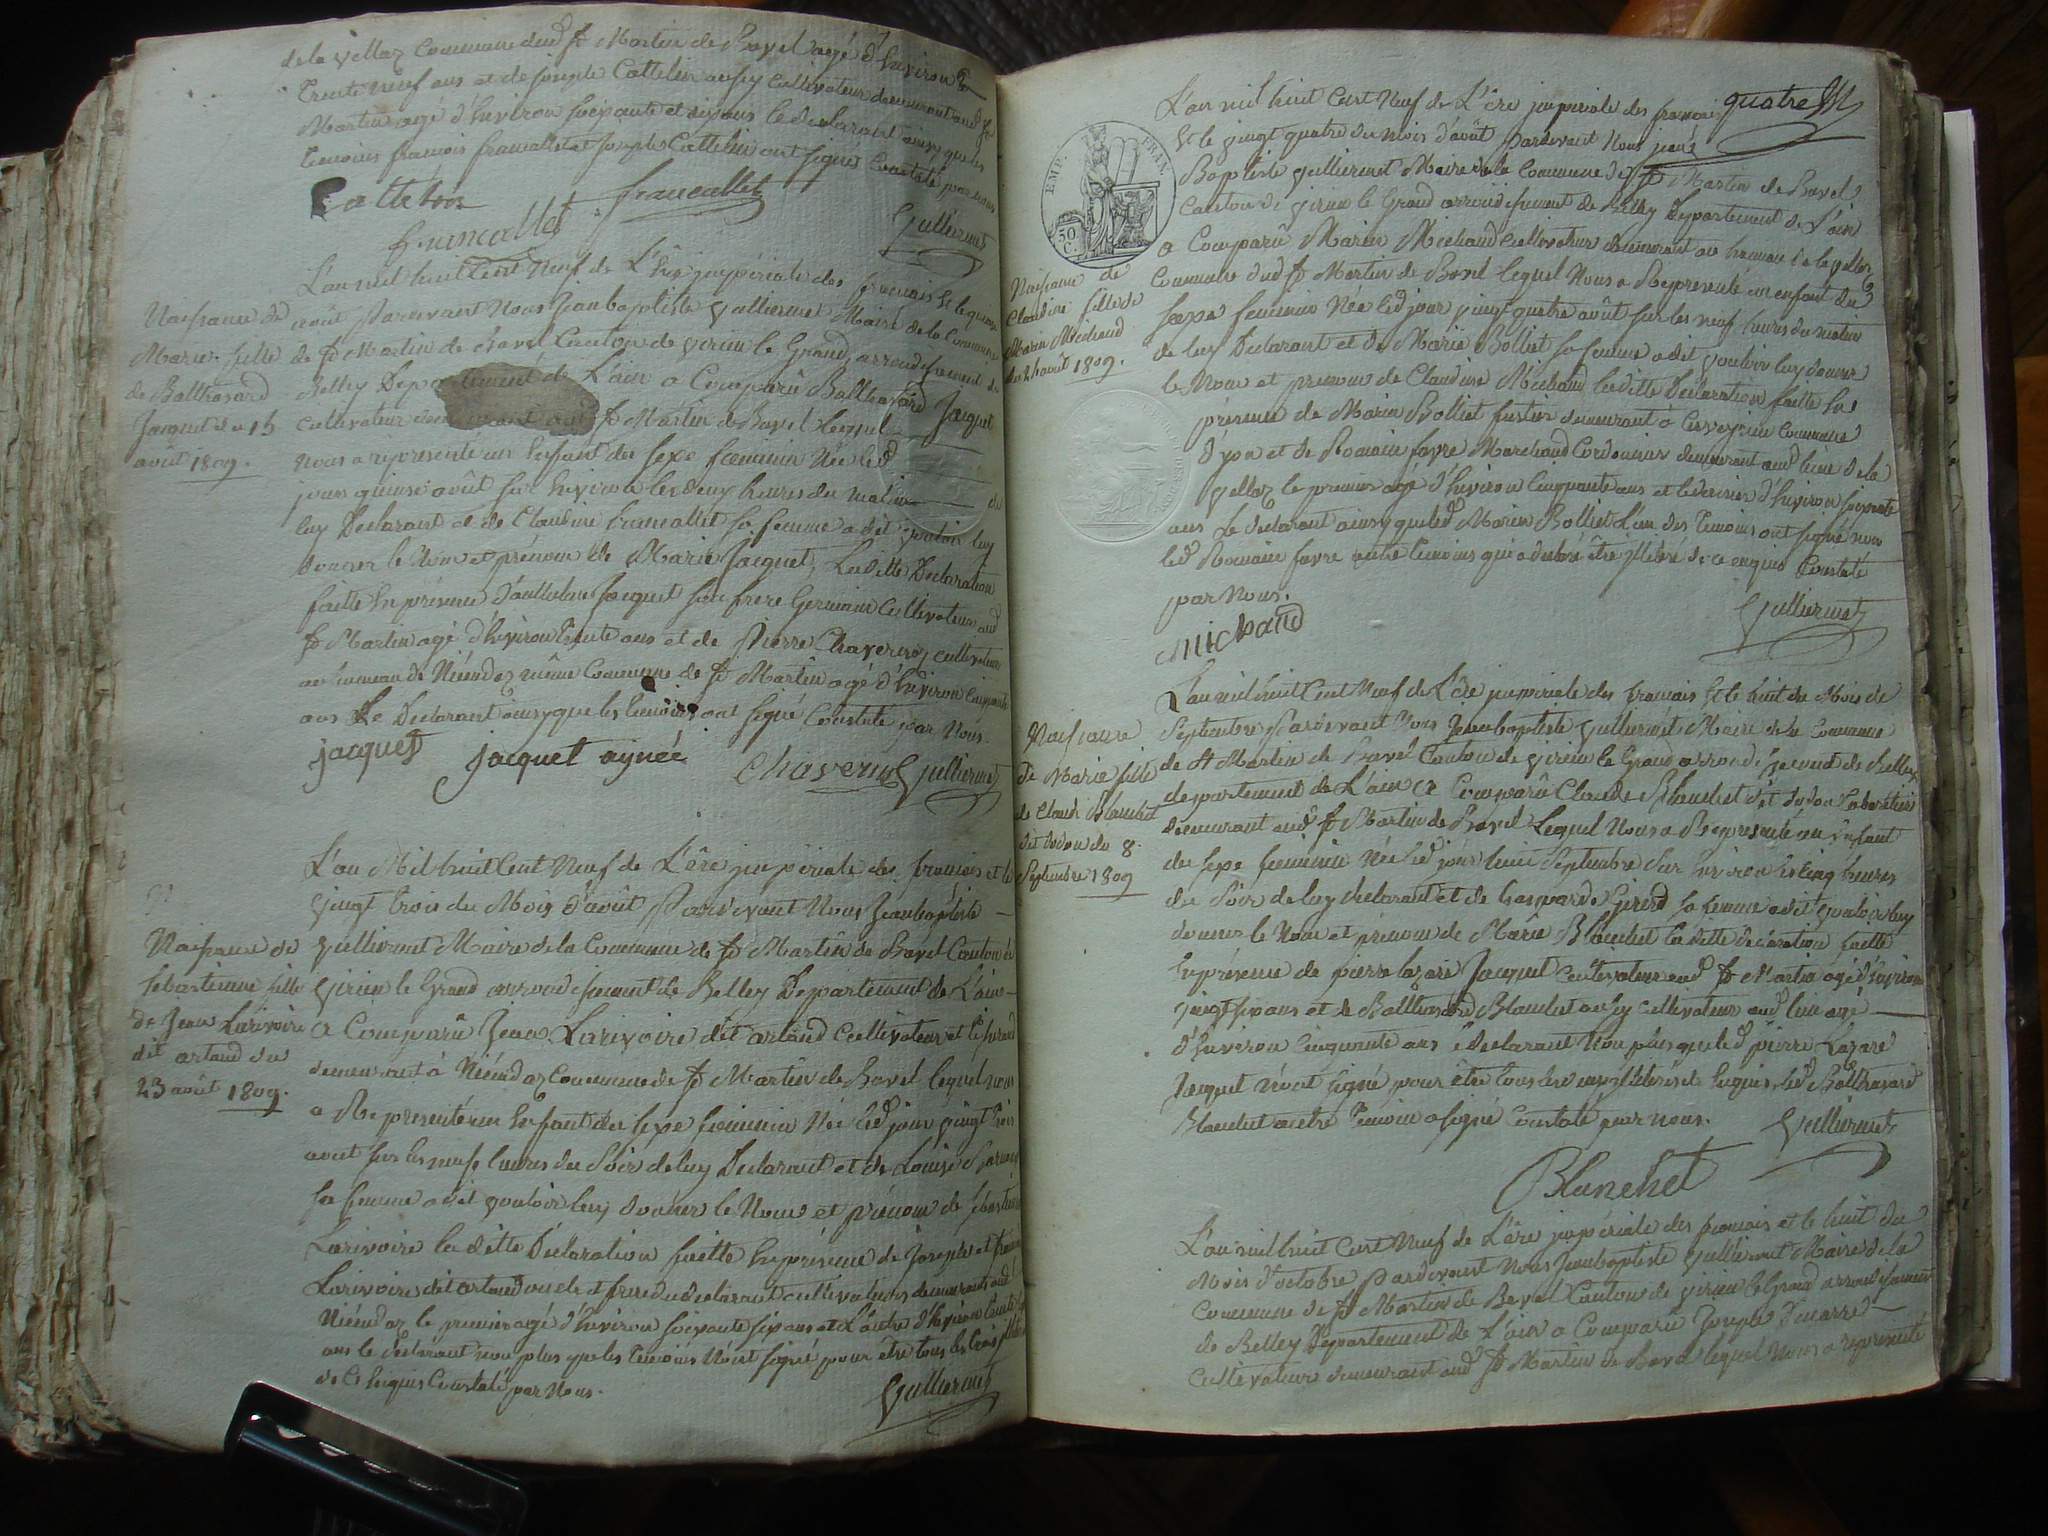 de la vellaz Commune dud St Martin de Bavel agé d'heviron
Trente neuf ans et de joseph Cattelin aussy cultivateur demeurant aud St
Martin agé d'heviron soixante et dix ans le declarant ainsy que les
temoins francois francallet et joseph Cattelin ont signés Constaté par nous
Cattelin
francallet francallet Gulliermet
L'an mil huit Cent Neuf de L'ère jmpériale des français et le quinze
août Pardevant Nous jean baptiste Gulliermet Maire de la Commune
de St Martin de Bavel Canton de virieu le Grand arrondissement de
Belley Departement de L'ain a Comparû Balthasard Jacquet
cultivateur demeurant aud St Martin de Bavel Lequel
nous a représenté un Enfant du sexe feminin Née led
jour quinze août sur heviron les deux heures du matin de
luy Declarant et de Claudine francallet sa femme a dit vouloir luy
donner le Nom et prénom de Marie Jacquet, Laditte Declaration
faitte En présence d'anthelme Jacquet son frere Germain Cultivateur aud
St Martin agé d'heviron Trente ans et de Pierre Chaveroz cultivateur
au hameau de Niéindaz même Commune de St Martin agé d'heviron Cinquante
ans Le Declarant ainsy que les temoins ont signé Constaté par Nous.
jacquet jacquet aynée Gulliermet
Naissance de
Marie fille
de Balthasard
Jacquet du 15
août 1809.
L'an Mil huit Cent Neuf de L'ère jmpériale des français et le
vingt trois du Mois d'août Pardevant Nous Jean baptiste
Gulliermet Maire de la Commune de St Martin de Bavel Canton de
virieu le Grand arrondissement de Belley Departement de L'ain
a Comparû Jean Larivoire dit artaud Cultivateur et
demeurant à Niéindaz Commune de St Martin de Bavel lequel nous
a Representé un Enfant du sexe feminin Née led jour vingt trois
aout sur les neuf heures du Soir de luy Declarant et de Louise
sa femme a dit vouloir luy donner le Nom et prénom de sébastienne
Larivoire laditte Déclaration faitte En présence de Joseph et
Larivoire dit artaud oncle et frere du declarant cultivateurs demeurants aud
Niéindaz le premier agé d'heviron soixante six ans et L'autre d'heviron
ans le declarant non plus que les Temoins N'ont signé pour être tous les trois
de Ce Enquis Constaté par Nous.
Gulliermet
Naissance de
sébastienne fille
de Jean Larivoire
dit artaud du
23 août 1809.
quatre
L'an mil huit Cent Neuf de L'ère jmpériale des français
Et le vingt quatre du mois d'août Pardevant Nous jean
Baptiste Gulliermet Maire de la Commune de St Martin de Bavel
Canton de virieu le Grand arrondissement de Belley Departement de L'ain
a Comparû Marin Michaud Cultivateur demeurant au hameau de la vellaz
Commune dud St Martin de Bavel lequel Nous a Representé un enfant du
sexe feminin Née led jour vingt quatre août sur les neuf heures du matin
de luy Declarant et de Marie Bolliet sa femme a dit vouloir luy donner
le Nom et prenom de Claudine Michaud laditte Déclaration faitte En
présence de Marin Bolliet demeurant à Cerveyrieu Commune
d'yon et de Romain favre Marchand Cordonnier demeurant aud lieu de la
vellaz le premier agé d'heviron Cinquante ans et le dernier d'heviron soixante
ans Le declarant ainsy que led Marin Bolliet L'un des Temoins ont signé non
led Romain favre autre temoins qui a declaré être jlliteré de ce enquis Constaté
par Nous.
Michaud Gulliermet
EMP. FRAN.
50 C.
Naissance de
Claudine fille de
Marin Michaud
du 24 août 1809.
L'an mil huit Cent Neuf de L'ère jmperiale des francais Et le huit du Mois de
Septembre Pardevant Nous Jean baptiste Gulliermet Maire de la Commune
de St Martin de Bavel Canton de virieu le Grand arrondissement de Belley
departement de L'ain a Comparû Claude Blanchet dit Dodon
demeurant aud St Martin de Bavel Lequel Nous a Representé un enfant
du sexe feminin Née led jour huit Septembre Sur heviron les Cinq heures
du Soir de luy declarant et de Gasparde Girerd sa femme a dit vouloir luy
donner le Nom et prénom de Marie Blanchet laditte declaration faitte
En présence de pierre lazare Jacquet cultivateur aud St Martin agé d'heviron
vingt six ans et de Balthasard Blanchet aussy cultivateur aud lieu agé
d'heviron Cinquante ans le Declarant Non plus que led pierre Lazare
Jacquet n'ont signé pour être tous les deux jlliterés et Enquis, led Balthasard
Blanchet autre Temoin a signé Constaté par nous.
Gulliermet
Blanchet
Naissance
de Marie fille
de Claude Blanchet
dit Dodon du 8
Septembre 1809
L'an mil huit Cent Neuf de L'ère jmpériale des francais et le huit du
Mois d'octobre Pardevant Nous Jean baptiste Gulliermet Maire de la
Commune de St Martin de Bavel Canton de virieu le Grand arrondissement
de Belley Departement de L'ain a Comparû Joseph
Cultivateur demeurant aud St Martin de Bavel lequel Nous a représenté